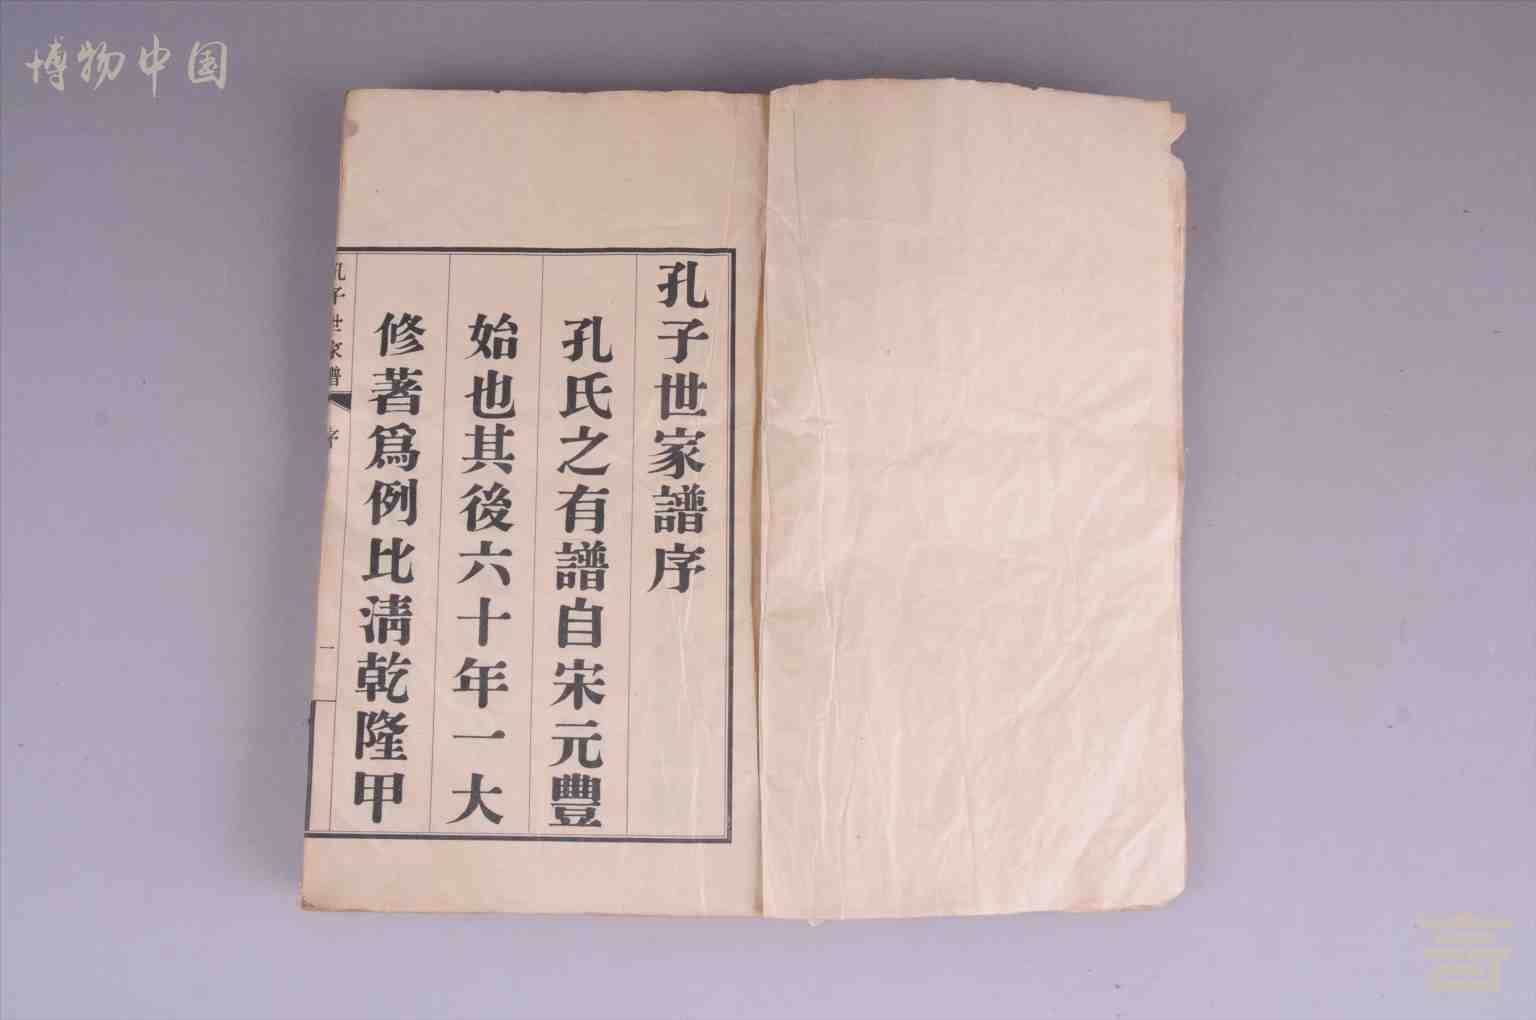 博物中国
孔子世家譜序
孔氏之有譜自宋元豐
始也其後六十年一大
修著爲例比淸乾隆甲
孔子世家譜
序
一